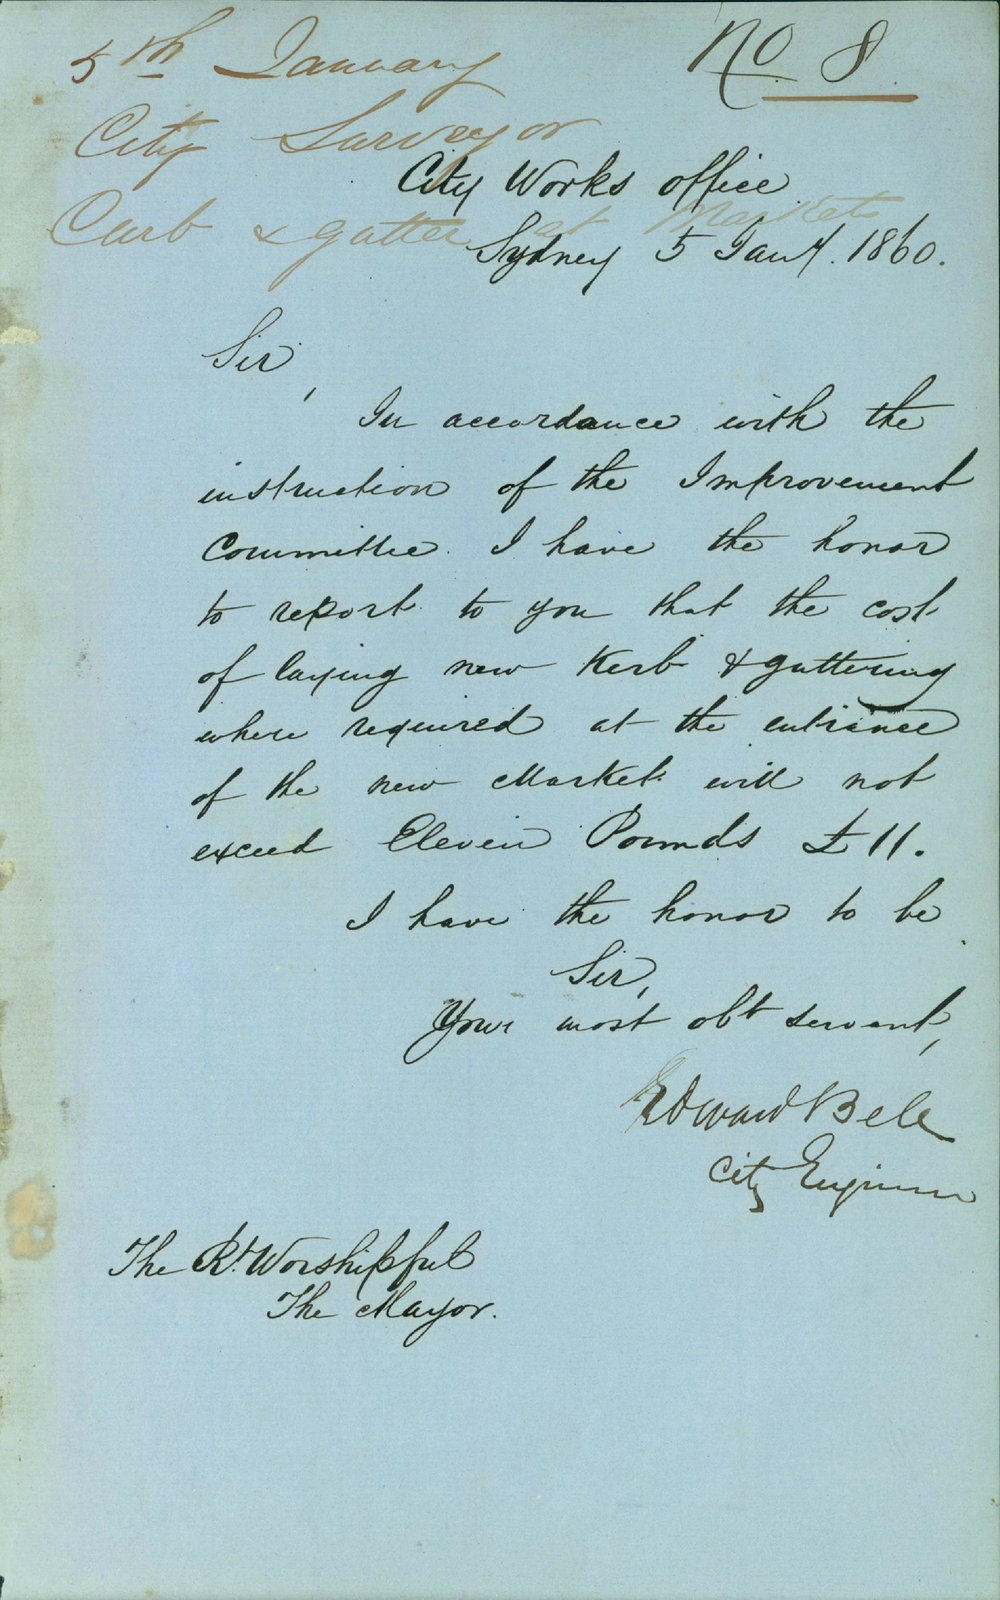 5th January
No. 8.
City Surveyor
City Works office
Curb & gutter at Markets
Sydney 5 Jany. 1860.
Sir,
In accordance with the
instruction of the Improvement
Committee. I have the honor
to report to you that the cost
of laying new Kerb & guttering
where required at the entrance
of the new Market will not
exceed Eleven Pounds £11.
I have the honor to be
Sir,
Your most obt servant,
Edward Bell
City Engineer
The Rt. Worshipful
The Mayor.